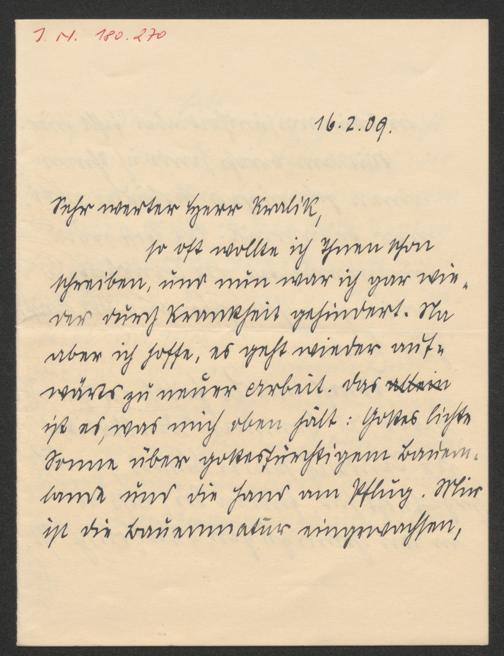 J. N. 180.270
16.2.09.
Sehr werter Herr Kralik,
so oft wollte ich Ihnen schon
schreiben, und nun war ich gar wie-
der durch Krankheit gehindert. Na
aber ich hoffe, es geht wieder auf-
wärts zu neuer Arbeit. Das allein
ist es, was mich oben hält: Gottes lichte
Sonne über gottesfürchtigem Bauern-
lande und die Hand am Pflug. Mir
ist die Bauernnatur eingewachsen,